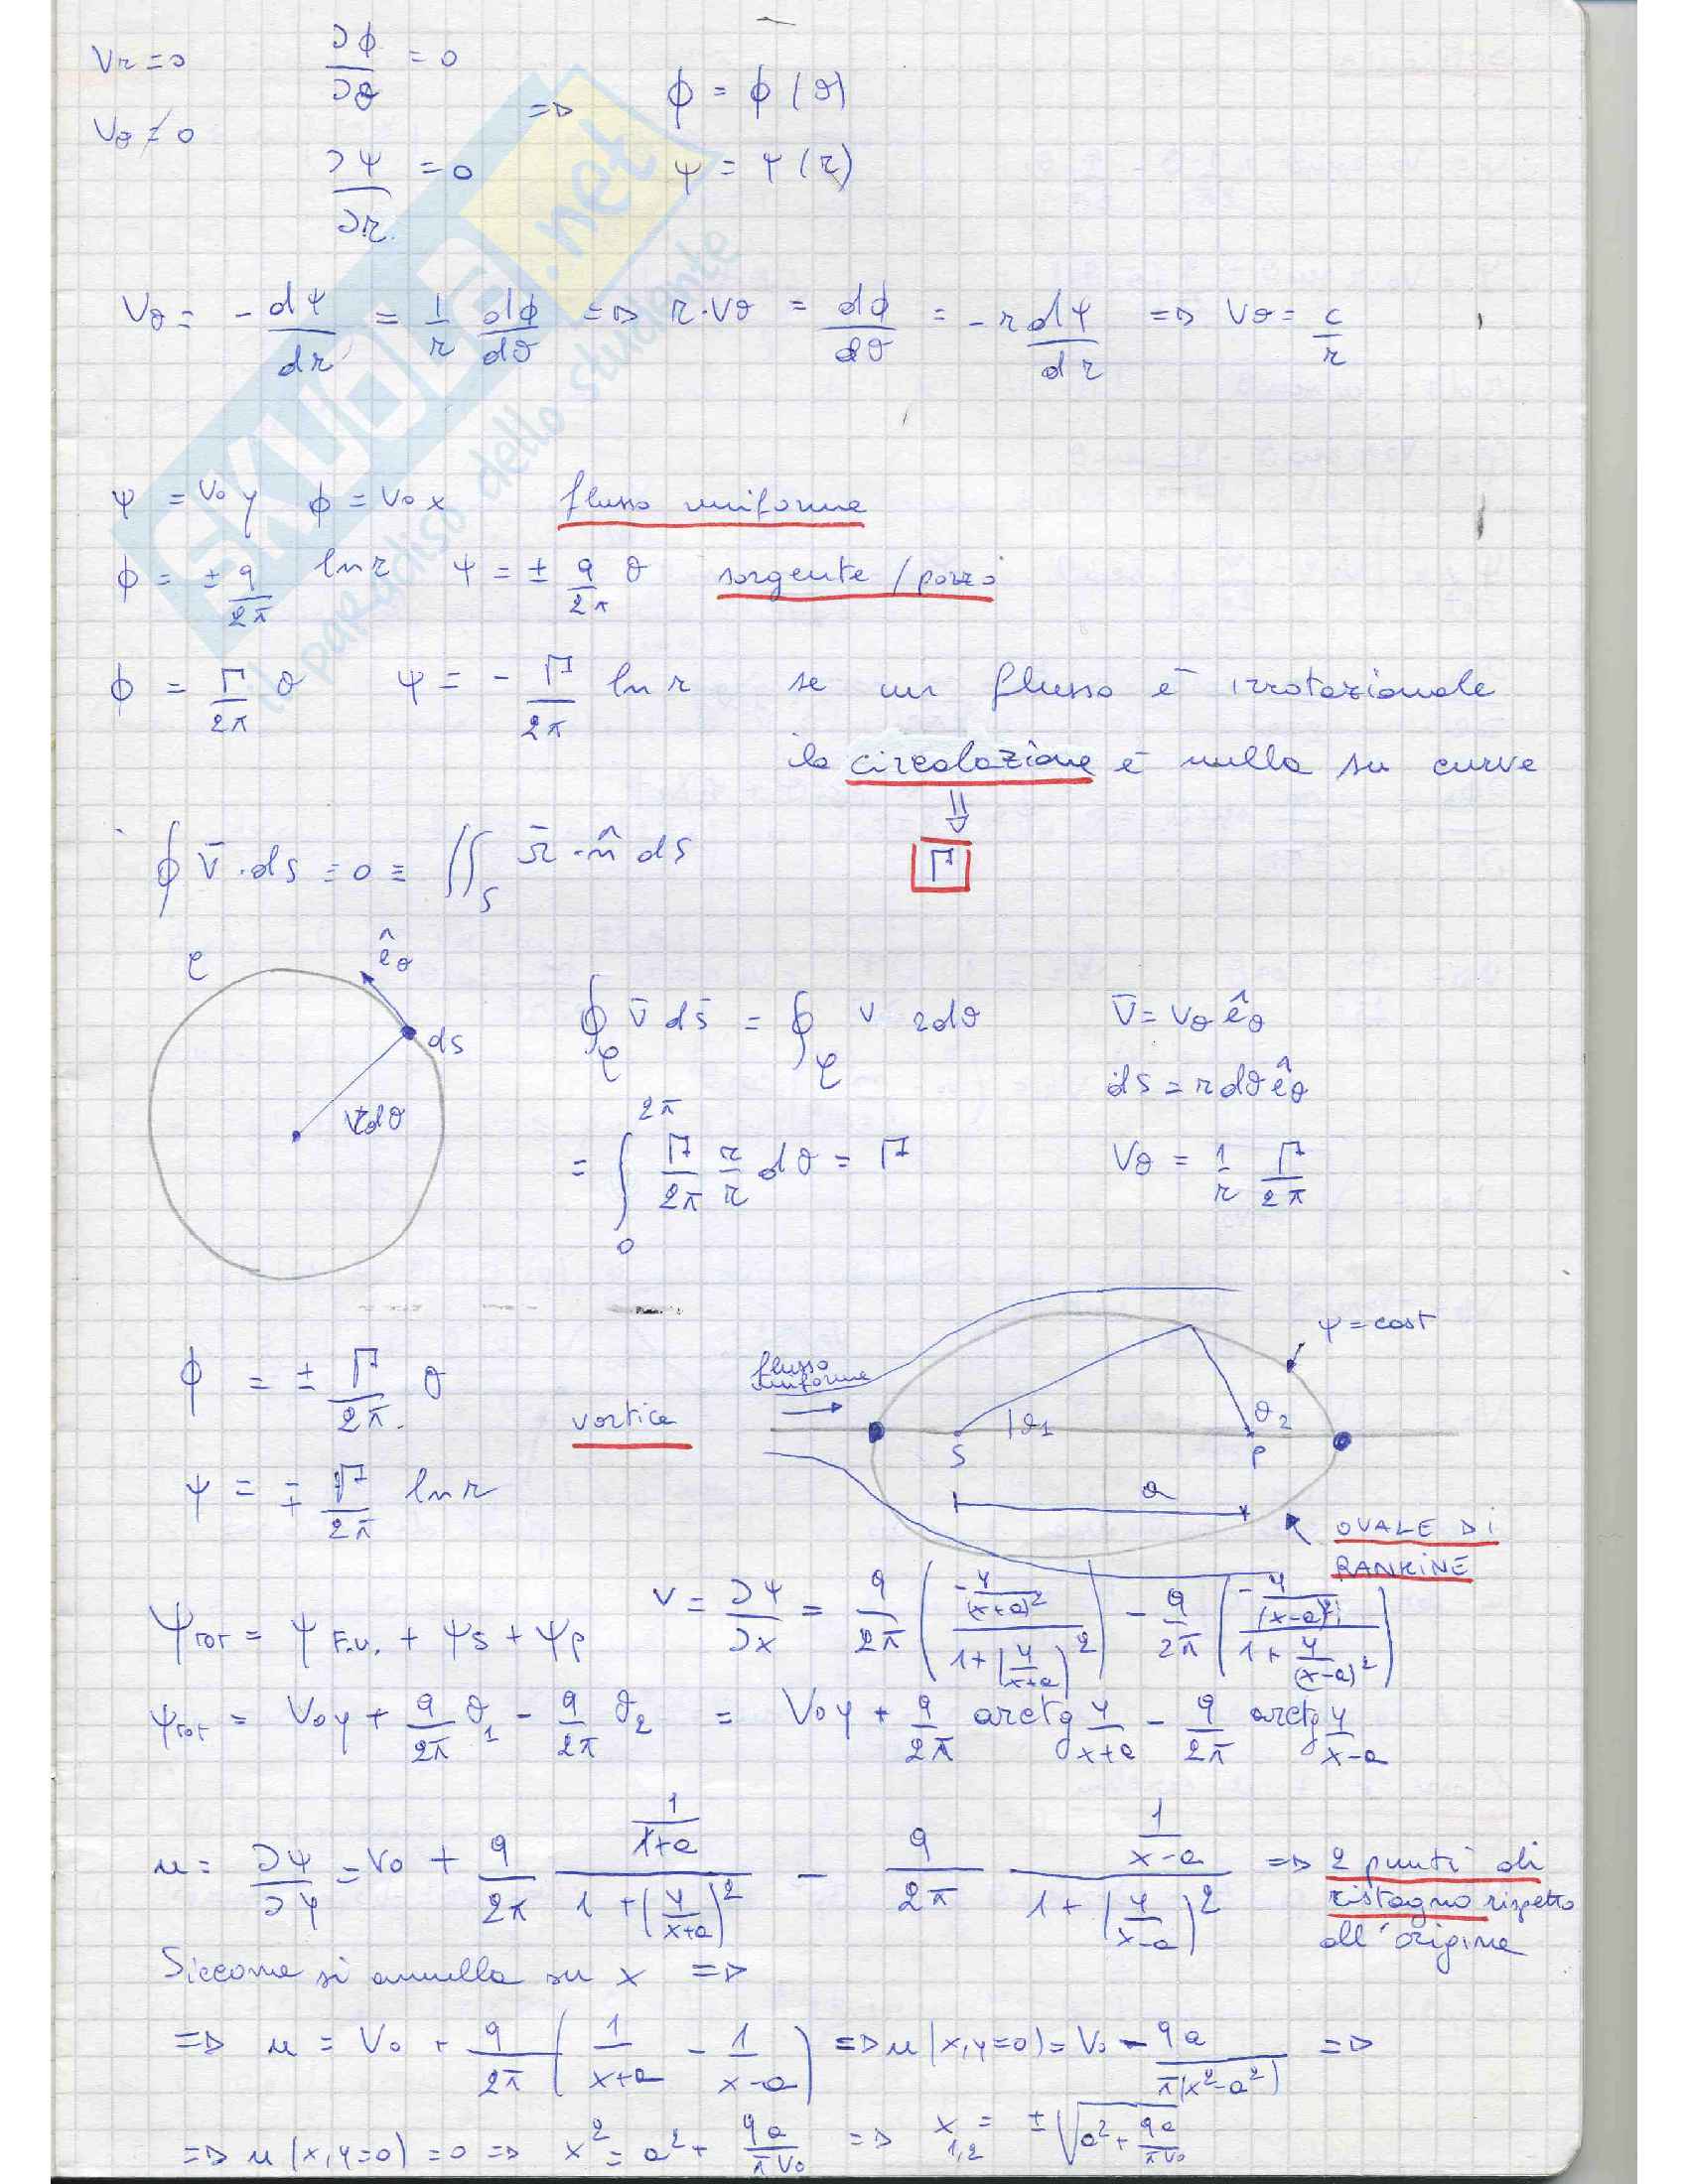 Vr = 0    ∂ϕ/∂θ = 0
=> ϕ = ϕ(θ)
Vθ ≠ 0    ∂ψ/∂r = 0    ψ = ψ(r)
Vθ = - dψ/dr = 1/r dϕ/dθ => r·Vθ = dϕ/dθ = - r dψ/dr => Vθ = c/r
ψ = V₀ y    ϕ = V₀ x    flusso uniforme
ϕ = ± q/2π ln r    ψ = ± q/2π θ    sorgente / pozzo
ϕ = Γ/2π θ    ψ = - Γ/2π ln r    se un flusso è irrotazionale
la circolazione è nulla su curve
⇓
Γ
∮ V̄ · ds = 0 ≡ ∬_S Ω̄ · n̂ dS
ê_θ
ds
rdθ
∮ V̄ ds̄ = ∮ V rdθ    V̄ = Vθ ê_θ
ds = r dθ ê_θ
= ∫₀^2π Γ/2π r/r dθ = Γ    Vθ = 1/r Γ/2π
ϕ = ± Γ/2π θ
vortice
ψ = ∓ Γ/2π ln r
flusso uniforme
ψ = cost
θ₁    θ₂
S    P
a
OVALE DI
RANKINE
V = ∂ψ/∂x = q/2π ( (-y/(x+a)²) / (1+(y/(x+a))²) ) - q/2π ( (-y/(x-a)²) / (1+y/(x-a)²) )
ψtot = ψ F.U. + ψs + ψp
ψtot = V₀y + q/2π θ₁ - q/2π θ₂ = V₀y + q/2π arctg y/(x+a) - q/2π arctg y/(x-a)
u = ∂ψ/∂y = V₀ + q/2π (1/(x+a)) / (1+(y/(x+a))²) - q/2π (1/(x-a)) / (1+(y/(x-a))²) => 2 punti di
ristagno rispetto
all'origine
Siccome si annulla su x =>
=> u = V₀ + q/2π (1/(x+a) - 1/(x-a)) => u(x,y=0) = V₀ - qa/(π(x²-a²)) =>
=> u(x,y=0) = 0 => x² = a² + qa/πV₀ => x₁,₂ = ±√(a² + qa/πV₀)
SKUOLA.net
il paradiso dello studente